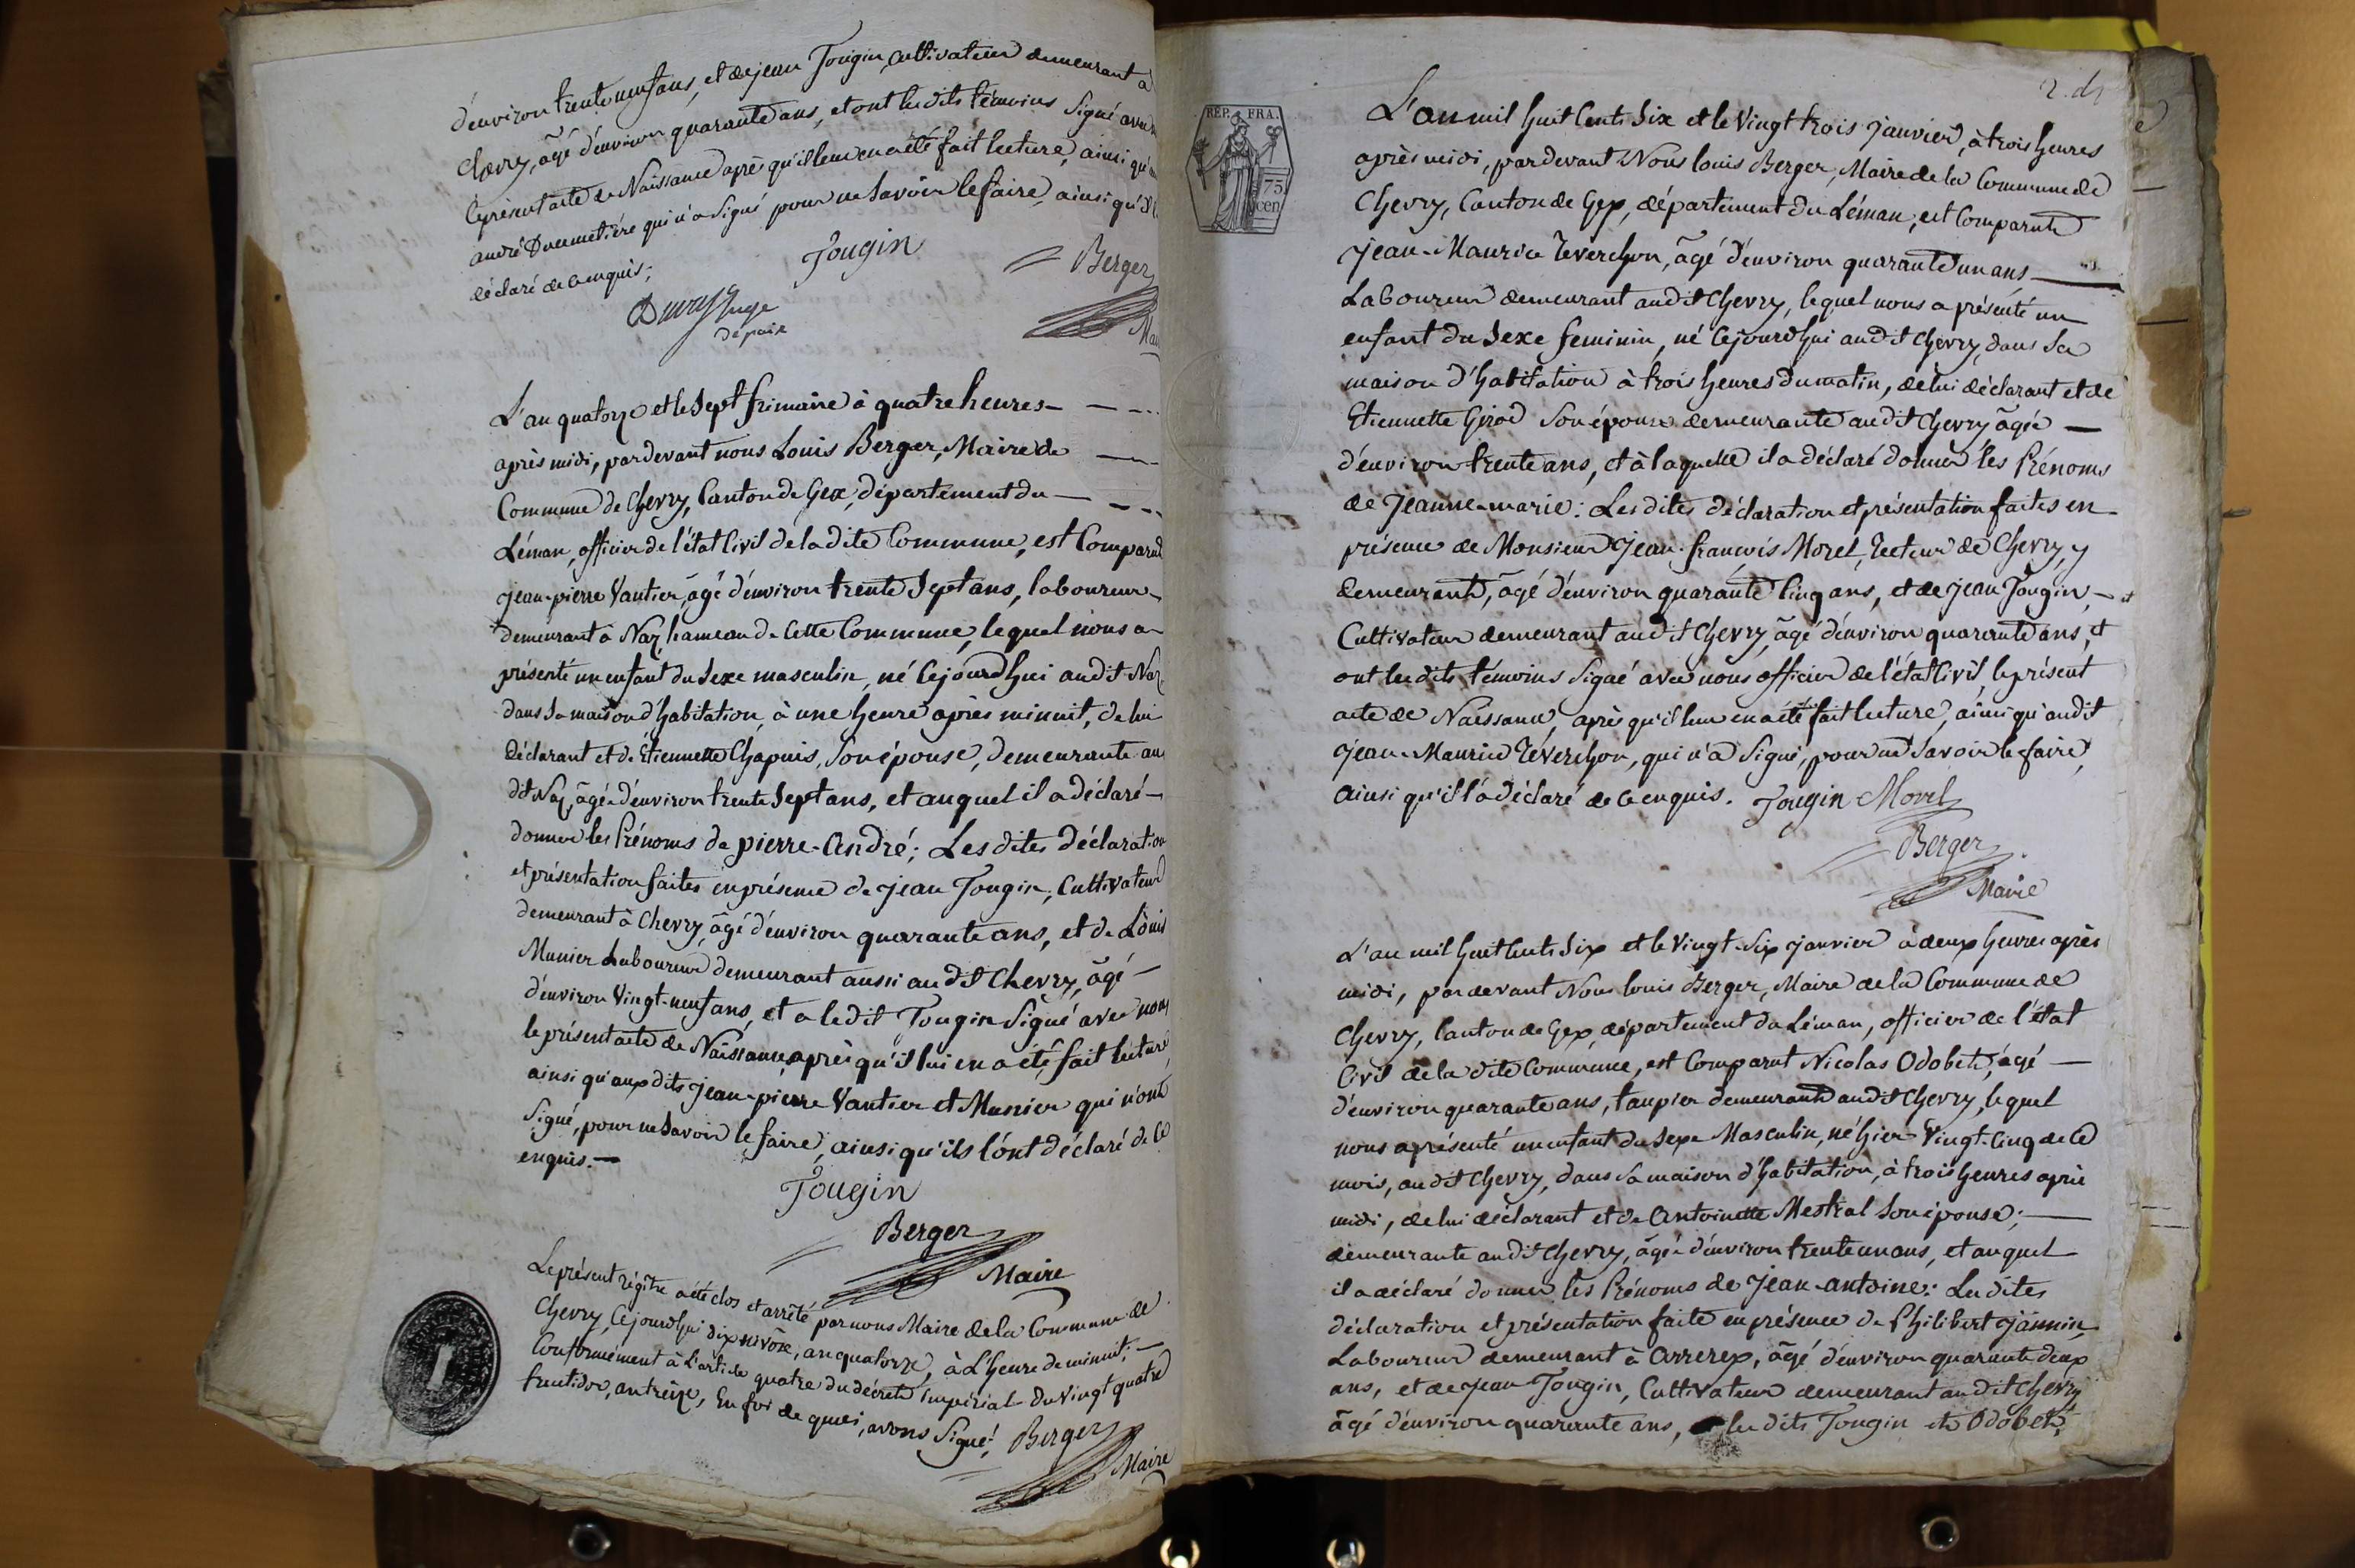 d'environ trente neuf ans, et de jean Tougin, cultivateur demeurant à
Chevry, âgé d'environ quarante ans, et ont les dits témoins Signé avec
le présent acte de Naissance après qu'il leur en a été fait lecture, ainsi qu'
andré qui n'a Signé pour ne Savoir le faire, ainsi qu'il
déclaré de ce enquis;
Tougin
Berger
Juge
de paix
L'an quatorze et le Sept frimaire à quatre heures
après midi, pardevant nous Louis Berger, Maire de
Commune de Chevry, Canton de Gex, département du
Léman, officier de l'état Civil de la dite Commune, est Comparu
jean-pierre Vantier, âgé d'environ trente Sept ans, laboureur
demeurant à Naz, hameau de Cette Commune, lequel nous a
présenté un enfant du Sexe masculin, né Cejourd'hui au dit Naz
dans Sa maison d'habitation, à une heure après minuit, de lui
déclarant et de Etiennette Chapuis, Son épouse, demeurante au
dit Naz, âgée d'environ trente Sept ans, et auquel il a déclaré
donner les Prénoms de pierre-andré; Les dites déclaration
et présentation faites en présence de jean Tougin, Cultivateur
demeurant à Chevry, âgé d'environ quarante ans, et de Louis
Munier Laboureur demeurant aussi au dit Chevry, âgé
d'environ Vingt-neuf ans, et a le dit Tougin Signé avec nous
le présent acte de Naissance, après qu'il lui en a été fait lecture
ainsi qu'aux dits jean-pierre Vantier et Munier qui n'ont
Signé, pour ne Savoir le faire, ainsi qu'ils l'ont déclaré de ce
enquis.
Tougin
Berger
Maire
Le présent régître a été clos et arrêté par nous Maire de la Commune de
Chevry, Cejourd'hui dix nivôse, an quatorze, à L'heure de minuit;
Conformément à L'article quatre du décret Impérial du Vingt quatre
fructidor, an treize, En foi de quoi, avons Signé;
Berger
Maire
RÉP. FRA.
75
cen
L'an mil huit Cents Six et le Vingt trois janvier, à trois heures
après midi, par devant Nous louis Berger, Maire de la Commune de
Chevry, Canton de Gex, département du Léman, est Comparut
jean-Maurice Reverchon, âgé d'environ quarante un ans
Laboureur demeurant au dit Chevry, lequel nous a présenté un
enfant du Sexe feminin, né Cejourd'hui au dit Chevry, dans Sa
maison d'habitation à trois heures du matin, de lui déclarant et de
Etiennette Girod Son épouse demeurante au dit Chevry âgée
d'environ trente ans, et à laquelle il a déclaré donner les Prénoms
de jeanne-marie: Les dites déclaration et présentation faites en
présence de Monsieur jean-françois Morel, Recteur de Chevry, y
demeurant, âgé d'environ quarante Cinq ans, et de jean Tougin,
Cultivateur demeurant au dit Chevry, âgé d'environ quarante ans, et
ont les dits témoins Signé avec nous officier de l'état Civil, le présent
acte de Naissance, après qu'il leur en a été fait lecture, ainsi qu'au dit
jean-Maurice Réverchon, qui n'a Signé, pour ne Savoir le faire,
ainsi qu'il l'a déclaré de ce enquis. Tougin Morel
Berger
Maire
L'an mil huit Cents Six et le Vingt-Six janvier à deux heures après
midi, par devant Nous louis Berger, Maire de la Commune de
Chevry, Canton de Gex, département du Léman, officier de l'état
Civil de la dite Commune, est Comparut Nicolas Odobet, âgé
d'environ quarante ans, taupier demeurant au dit Chevry, lequel
nous a présenté un enfant du Sexe Masculin, né hier Vingt-Cinq de ce
mois, au dit Chevry, dans Sa maison d'habitation, à trois heures après
midi, de lui déclarant et de Antoinette Mestral Son épouse;
demeurante au dit Chevry, âgée d'environ trente un ans, et auquel
il a déclaré donner les Prénoms de jean-antoine: Les dites
déclaration et présentation faite en présence de Philibert jannin,
Laboureur demeurant à , âgé d'environ quarante deux
ans, et de jean Tougin, Cultivateur demeurant au dit Chevry
âgé d'environ quarante ans, les dits Tougin et Odobet,